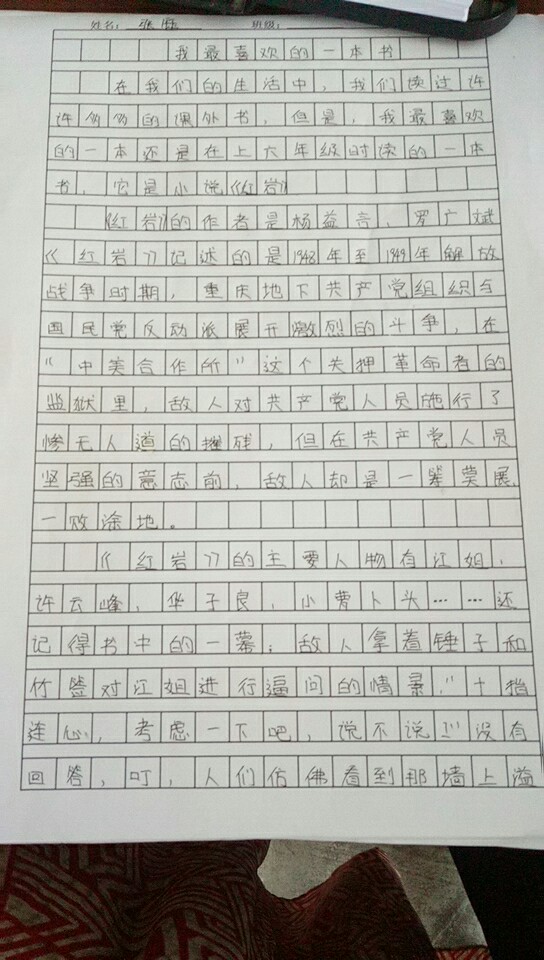 姓名： 张
班级：
我最喜欢的一本书
在我们的生活中，我们读过许
许多多的课外书，但是，我最喜欢
的一本还是在上六年级时读的一本
书，它是小说《红岩》
《红岩》的作者是杨益言，罗广斌
《红岩》记述的是1948年至1949年解放
战争时期，重庆地下共产党组织与
国民党反动派展开激烈的斗争，在
“中美合作所”这个关押革命者的
监狱里，敌人对共产党人员施行了
惨无人道的摧残，但在共产党人员
坚强的意志前，敌人却是一筹莫展，
一败涂地。
《红岩》的主要人物有江姐，
许云峰，华子良，小萝卜头……还
记得书中的一幕：敌人拿着锤子和
竹签对江姐进行逼问的情景.“十指
连心，考虑一下吧，说不说！”没有
回答，叮，人们仿佛看到那墙上溢